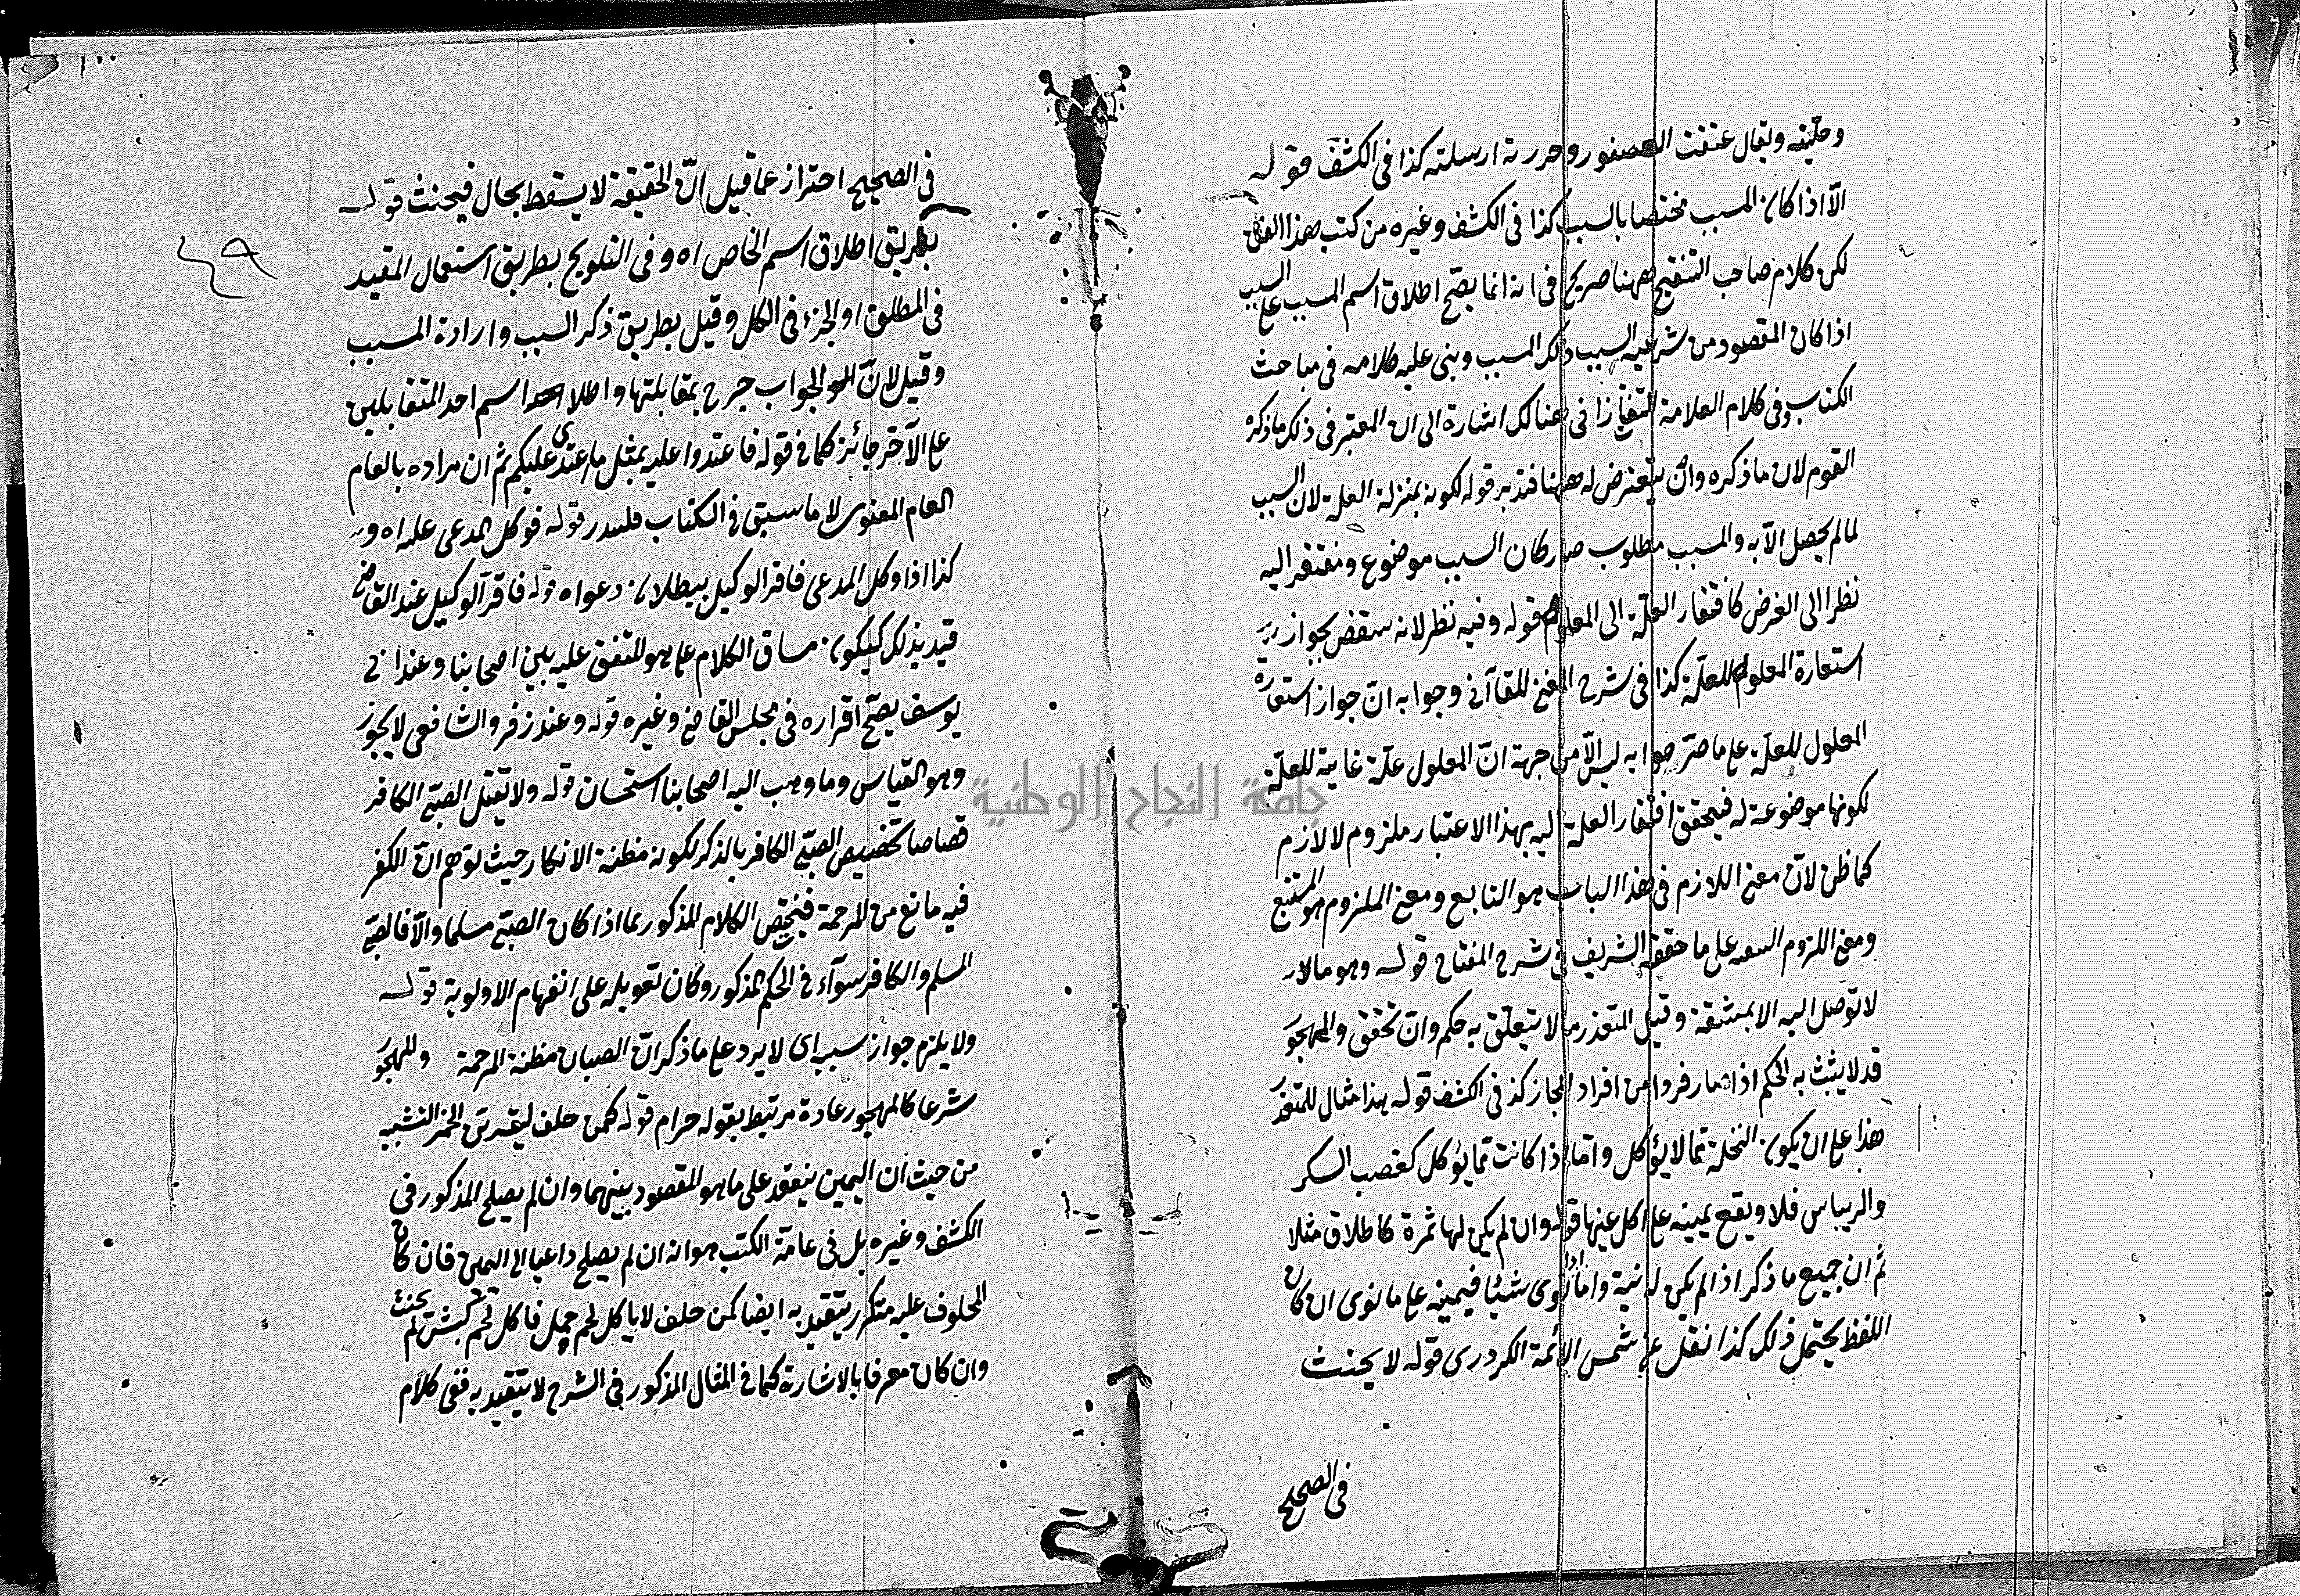 ويقال عتقت العصفور وحررته ارسلته كذا فى الكشف قوله
الّا اذا كان المسبب مختصا بالسبب كذا فى الكشف وغيره من كتب هذا الفن
لكن كلام صاحب التنقيح ههنا صريح فى انه انما يصح اطلاق اسم المسبب على السبب
اذا كان المقصود من شرعية السبب ذلك المسبب وبنى عليه كلامه فى مباحث
الكتاب وفى كلام العلامة التفتازانى هنالك اشارة الى ان المعتبر فى ذلك ما ذكره
القوم لان ما ذكره وان تعرض له ههنا فتدبر قوله لكونه بمنزلة العلة لان السبب
لما لم يحصل الّا به والمسبب مطلوب صار كان السبب موضوع ومفتقر اليه
نظرا الى الغرض كافتقار العلّة الى المعلول قوله وفيه نظر لانه ينتقض بجواز
استعارة المعلول للعلّة كذا فى شرح المغنى للقاآنى وجوابه انّ جواز استعارة
المعلول للعلّة على ما صرّحوا به ليس الّا من جهة انّ المعلول علّة غايية للعلّة
لكونها موضوعة له فيتحقق افتقار العلة اليه بهذا الاعتبار ملزوم لا لازم
كما ظن لانّ معنى اللازم فى هذا الباب هو التابع ومعنى الملزوم هو المستتبع
ومعنى اللزوم على ما حققه الشريف فى شرح المفتاح قوله وهو مالا
لا توصل اليه الا بمشقة وقيل المتعذر مالا يتعلق به حكم وان تحقق والمهجور
قد لا يثبت به الحكم اذا صار فردا من افراد المجاز كذا فى الكشف قوله هذا مثال للمتعذر
هذا على ان يكون النخلة مما لا يؤكل واما اذا كانت مما يؤكل كقصب السكر
والريباس فلا ويقع يمينه على اكل عينها قوله وان لم يكن لها ثمرة كاطلاق مثلا
ثم ان جميع ما ذكر اذا لم يكن له نية واما اذا نوى شيئا فيمينه على ما نوى ان كان
اللفظ يحتمل ذلك كذا نقل عن شمس الائمة الكردرى قوله لا يحنث
فى الصحيح
فى الصحيح احتراز عما قيل انّ الحقيقة لا يسقط بحال فيحنث قوله
بطريق اطلاق اسم الخاص اه وفى التلويح بطريق استعمال المقيد
فى المطلق او الجزء فى الكل وقيل بطريق ذكر السبب وارادة المسبب
وقيل لانّ الجواب خرج بمقابلتها واطلاق اسم احد المتقابلين
على الآخر جائز كما فى قوله فاعتدوا عليه بمثل ما اعتدى عليكم ثم ان مراده بالعام
العام المعنوى لا ما سبق فى الكتاب قوله فوكل المدعى عليه اه
كذا اذا وكل المدعى فاقر الوكيل ببطلان دعواه قوله فاقر الوكيل عند القاضى
قيد بذلك ليكون مساق الكلام على ما هو المتفق عليه بين اصحابنا وعند ابى
يوسف يصحّ اقراره فى مجلس القاضى وغيره قوله وعند زفر والشافعى لا يجوز
وهو القياس وما ذهب اليه اصحابنا استحسان قوله ولا يقتل الصبىّ الكافر
قصاصا تخصيص الصبىّ الكافر بالذكر لكونه مظنة الانكار حيث توهم انّ الكفر
فيه مانع من المرحمة فيختص الكلام المذكور بما اذا كان الصبىّ مسلما والّا فالصبىّ
المسلم والكافر سوآء فى الحكم المذكور وكان تعويله على انفهام الاولوية قوله
ولا يلزم جواز سبيه اى لا يرد على ما ذكر انّ الصبيان مظنة المرحمة والمهجور
شرعا كالمهجور عادة مرتبط بقوله حرام قوله كمن حلف ليشربن الخمر التشبيه
من حيث ان اليمين ينعقد على ما هو المقصود بينهما وان لم يصلح المذكور فى
الكشف وغيره بل فى عامّة الكتب هو انه ان لم يصلح داعيا الى اليمين فان كان
المحلوف عليه منكّر يتقيد به ايضا كمن حلف لا ياكل لحم حمل فاكل لحم كبش لم يحنث
وان كان معرفا بالاشارة كما فى المثال المذكور فى الشرح لا يتقيد به ففى كلام
جامعة النجاح الوطنية